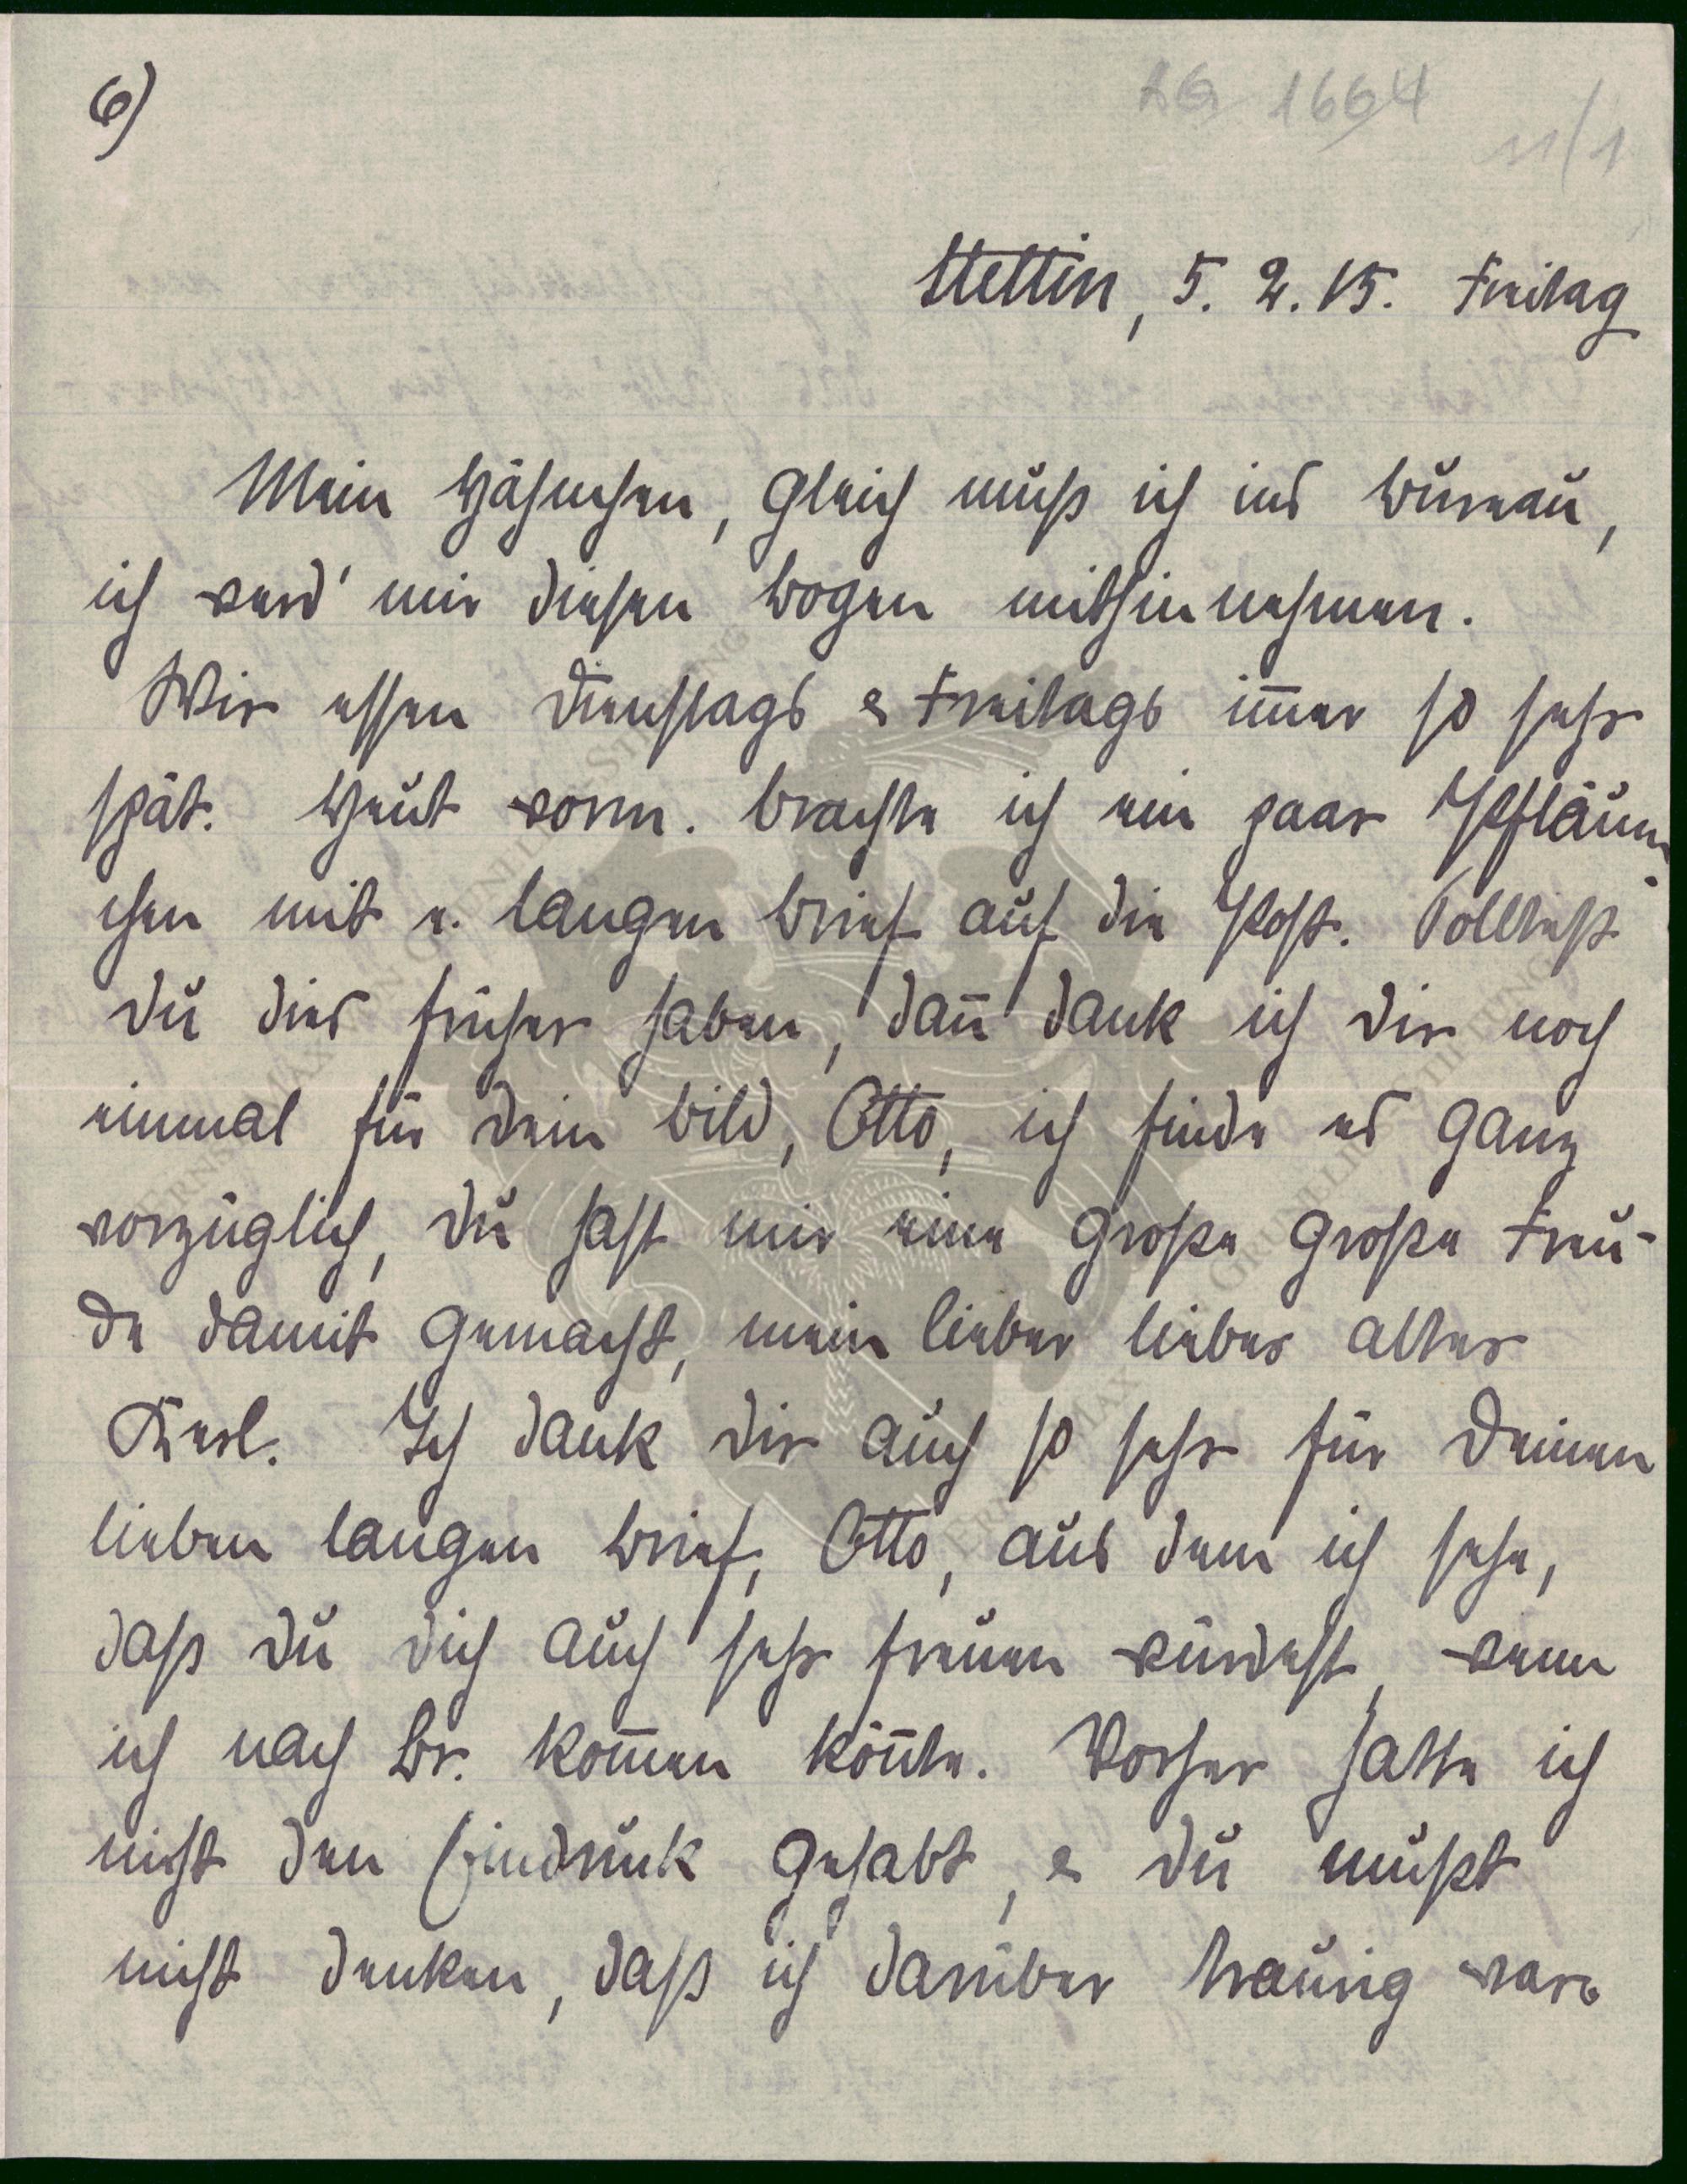 6)
LG 1664
11/1
Stettin, 5. 2. 15. Freitag
Mein Hähnchen, gleich muß ich ins Bureau,
ich werd' mir diesen Bogen mithinnehmen.
Wir essen Dienstags & Freitags im̅er so sehr
spät. Heut vorm. brachte ich ein paar Pfläum-
chen mit e. langen Brief auf die Post. Solltest
du dies früher haben, dan̅ dank ich dir noch
einmal für dein Bild, Otto, ich finde es ganz
vorzüglich, du hast mir eine große große Freu-
de damit gemacht, mein lieber lieber alter
Kerl. Ich dank dir auch so sehr für deinen
lieben langen Brief, Otto, aus dem ich sehe,
daß du dich auch sehr freuen würdest, wenn
ich nach Br. kom̅en kön̅te. Vorher hatte ich
nicht den Eindruck gehabt, & du mußt
nicht denken, daß ich darüber traurig war.